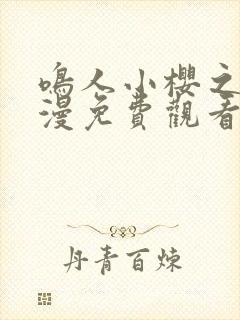 鳴人小櫻之
漫免費觀看
丹青百煉